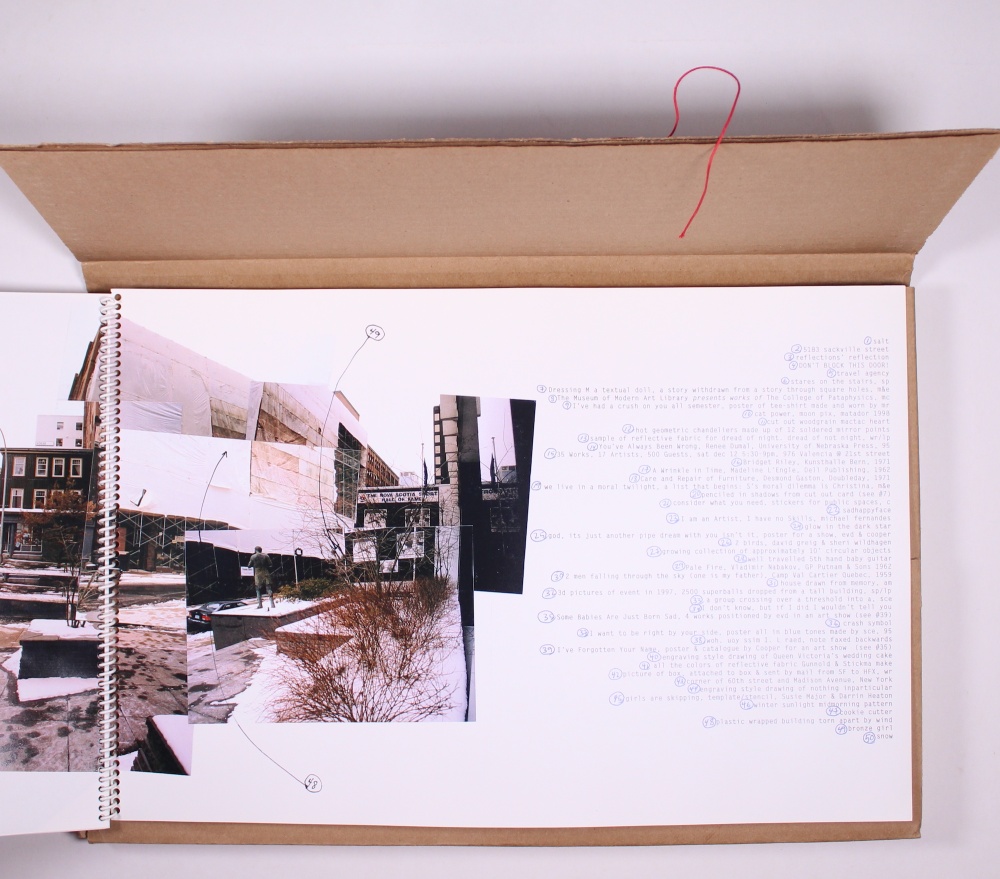 49
THE NOVA SCOTIA SPORT
HALL OF FAME
48
1 salt
2 5163 sackville street
3 reflections' reflection
4 DON'T BLOCK THIS DOOR!
5 travel agency
6 stared on the stairs, sp
7 Dressing M a textual doll, a story withdrawn from a story through square holes, m&e
8 The Museum of Modern Art Library presents works of The College of Pataphysics, mc
9 I've had a crush on you all semester, poster of tee shirt made and worn by mr
10 cat power, moon pix, matador 1998
11 cut out woodgrain maitac heart
12 hot geometric chandeliers made up of 12 coloured mirror points
13 sample of reflective fabric for dread of night, dread of not night, wr/lp
14 You've Always Been Wrong, Renee Dumal, University of Nebraska Press, 95
15 35 Works, 17 Artists, 500 Guests, sat dec 12 5:30-9pm, 976 Valencia @ 21st street
16 Bridget Riley, Kunsthalle Bern, 1971
17 A Wrinkle in Time, Madeline L'Engle, Dell Publishing, 1962
18 Care and Repair of Furniture, Desmond Gaston, Doubleday, 1971
19 we live in a moral twilight, a list that begins: S's moral dilemma is Christina, m&e
20 pencired in shadows from cut out card (see #7)
21 consider what you need, stickers for public spaces, c
22 sadhappyface
23 i am an Artist, I have no Skills, michael fernandes
24 glow in the dark star
25 god, its just another pipe dream with you isn't it, poster for a show, ead & cooper
26 2 birds, david greig & sheri wildhagen
27 growing collection of approximately 10" circular objects
28 well travelled 5th grade binder
29 Pale Fire, Vladimir Nabakov, GP Putnam & Sons 1962
30 Drawn from memory, am
31 2 men falling through the sky (one is my father), Camp Val Cartier Quebec, 1959
32 3d pictures of event in 1997, 2500 superballs dropped from a tall building, sp/lp
33 a group crossing over a threshold into a, sce
34 I don't know, but if I did I wouldn't tell you
35 Some Nables Are Just Born Sad, 4 works positioned by evd in an art show (see #39)
36 crash symbol
37 I want to be right by your side, poster all in blue tones made by sce, 95
38 woh, uoy ssim I, c raed, note faxed backwards
39 I've Forgotten Your Name, poster & catalogue by Cooper for an art show (see #35)
40 engraving style drawing of Queen Victoria's wedding cake
41 all the colors of reflective fabric Gunnold & Stickma make
42 picture of box, attached to box & sent by mail from SF to HFX, wr
43 corner of 60th street and Madison Avenue, New York
44 engraving style drawing of nothing inparticular
45 girls are skipping, template/stencil, Susie Major & Darrin Heaton
46 winter sunlight midmorning pattern
47 cookie cutter
48 plastic wrapped building torn apart by wind
49 bronze girl
50 snow